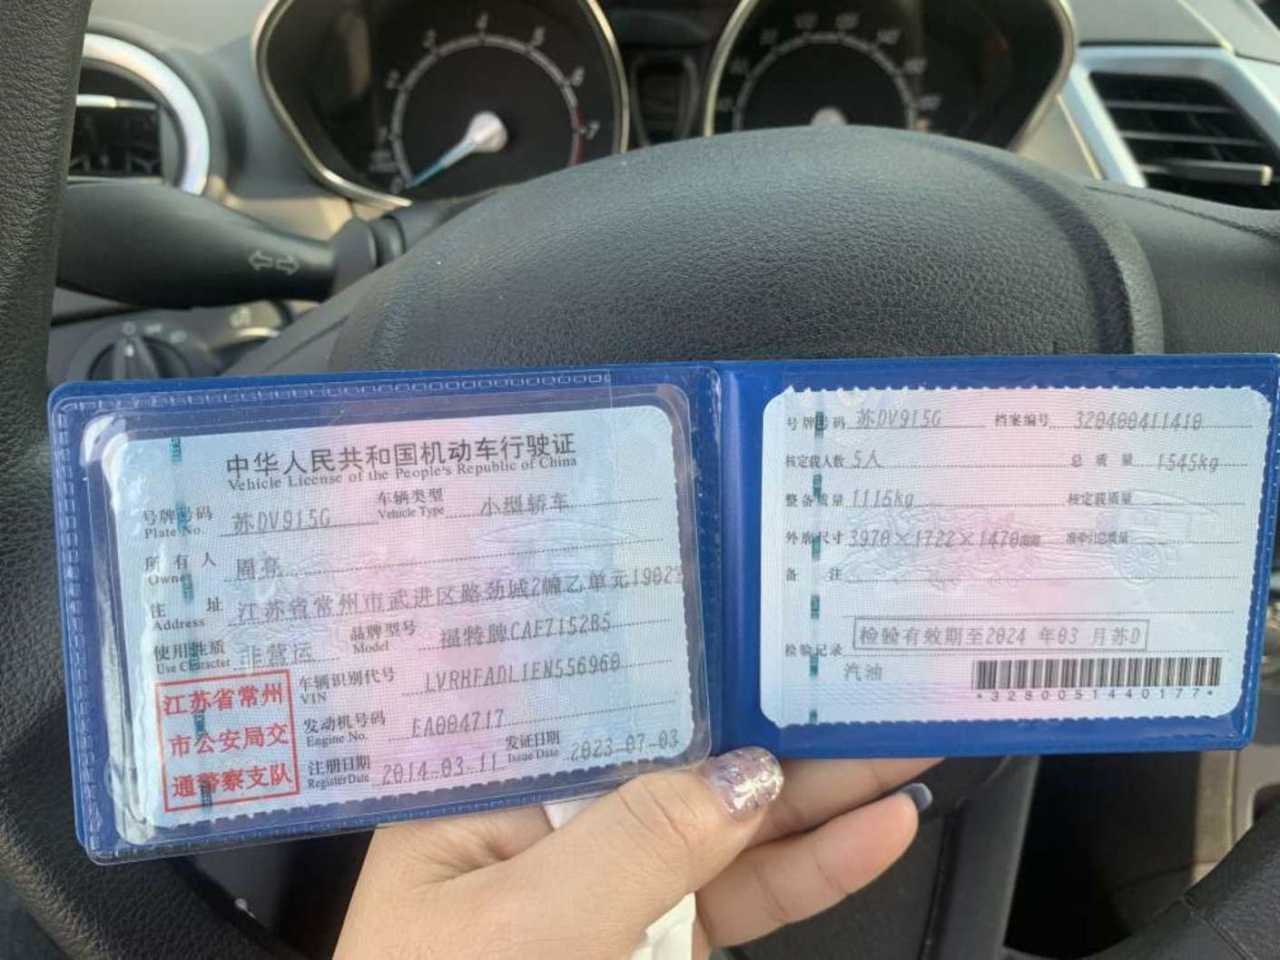 中华人民共和国机动车行驶证
Vehicle License of the People's Republic of China
号牌号码 苏DV915G 车辆类型 小型轿车
Plate No. Vehicle Type
所有人 周亮
Owner
住址 江苏省常州市武进区路劲城2幢乙单元1902
Address
使用性质 非营运 品牌型号 福特牌CAF7152B5
Use Character Model
车辆识别代号 LVRHFADL1EN556960
VIN
发动机号码 EA004717
Engine No.
注册日期 2014-03-11 发证日期 2023-07-03
Register Date Issue Date
江苏省常州
市公安局交
通警察支队
号牌号码 苏DV915G 档案编号 320400411410
核定载人数 5人 总质量 1545kg
整备质量 1115kg 核定载质量
外廓尺寸 3970×1722×1470mm 准牵引总质量
备注
检验记录 检验有效期至2024年03月苏D
汽油
*3280051440177*